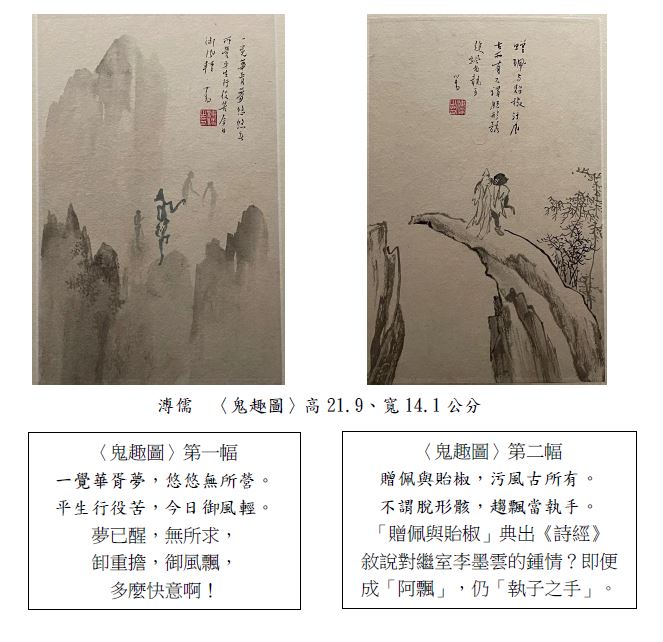 一覺華胥夢悠悠無
所營平生行役苦今日
御風輕
贈珮与貽椒污風
古所有不謂脫形骸
飄當執手
溥儒　〈鬼趣圖〉高 21.9、寬 14.1 公分
〈鬼趣圖〉第一幅
一覺華胥夢，悠悠無所營。
平生行役苦，今日御風輕。
夢已醒，無所求，
卸重擔，御風飄，
多麼快意啊！
〈鬼趣圖〉第二幅
贈佩與貽椒，污風古所有。
不謂脫形骸，趨飄當執手。
「贈佩與貽椒」典出《詩經》
敘說對繼室李墨雲的鍾情？即便
成「阿飄」，仍「執子之手」。